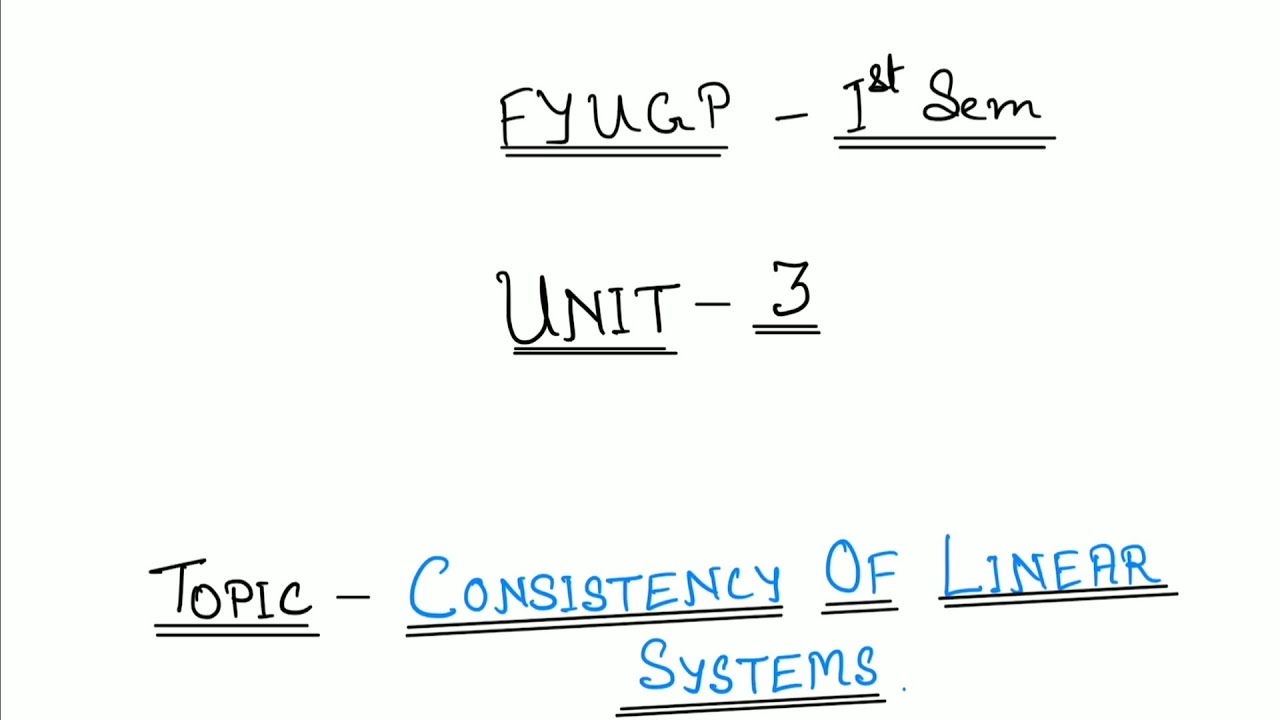 FYUGP - Ist Sem
UNIT - 3
TOPIC - CONSISTENCY OF LINEAR
SYSTEMS.